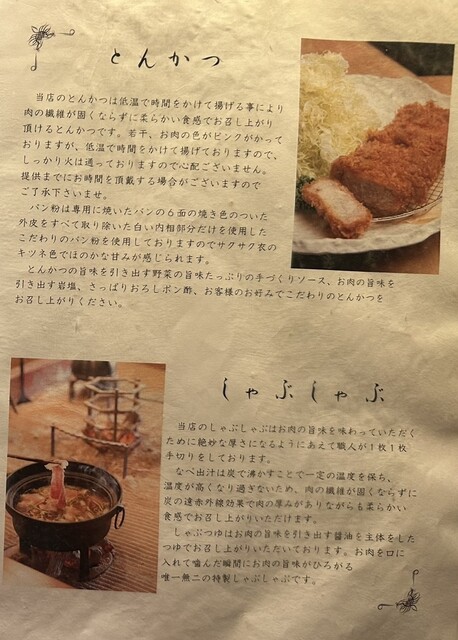 とんかつ
当店のとんかつは低温で時間をかけて揚げる事により
肉の繊維が固くならずに柔らかい食感でお召し上がり
頂けるとんかつです。若干、お肉の色がピンクがかって
おりますが、低温で時間をかけて揚げておりますので、
しっかり火は通っておりますので心配ございません。
提供までにお時間を頂戴する場合がございますので
ご了承下さいませ。
パン粉は専用に焼いたパンの6面の焼き色のついた
外皮をすべて取り除いた白い内相部分だけを使用した
こだわりのパン粉を使用しておりますのでサクサク衣の
キツネ色でほのかな甘みが感じられます。
とんかつの旨味を引き出す野菜の旨味たっぷりの手づくりソース、お肉の旨味を
引き出す岩塩、さっぱりおろしポン酢、お客様のお好みでこだわりのとんかつを
お召し上がりください。
しゃぶしゃぶ
当店のしゃぶしゃぶはお肉の旨味を味わっていただく
ために絶妙な厚さになるようにあえて職人が1枚1枚
手切りをしております。
なべ出汁は炭で沸かすことで一定の温度を保ち、
温度が高くなり過ぎないため、肉の繊維が固くならずに
炭の遠赤外線効果で肉の厚みがありながらも柔らかい
食感でお召し上がりいただけます。
しゃぶつゆはお肉の旨味を引き出す醤油を主体をした
つゆでお召し上がりいただいております。お肉を口に
入れて噛んだ瞬間にお肉の旨味がひろがる
唯一無二の特製しゃぶしゃぶです。